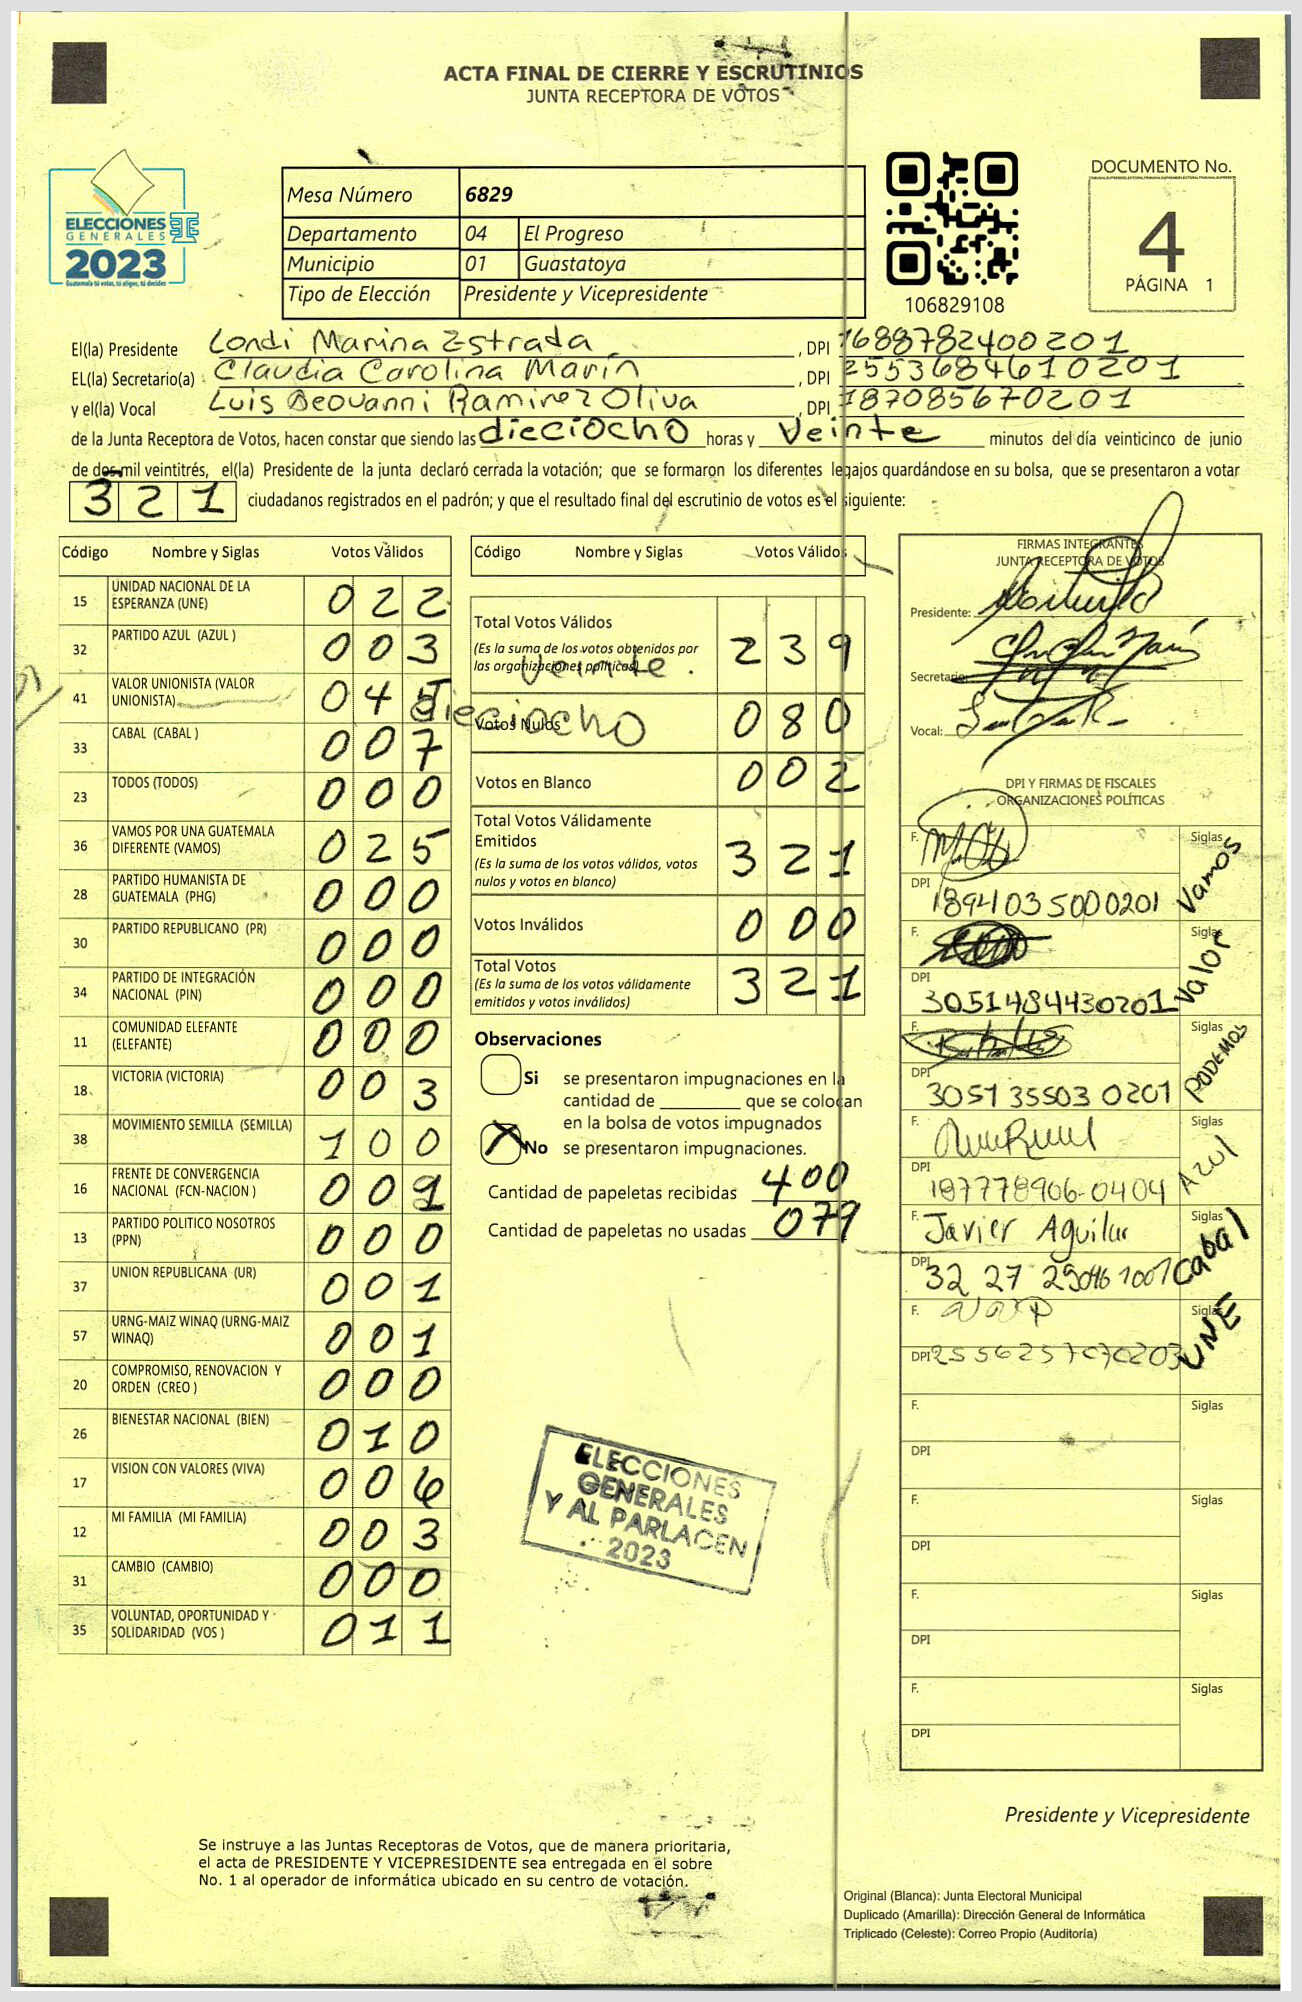 ACTA FINAL DE CIERRE Y ESCRUTINIOS
JUNTA RECEPTORA DE VOTOS
ELECCIONES
GENERALES
2023
Guatemala tú votas, tú eliges, tú decides
Mesa Número 6829
Departamento 04 El Progreso
Municipio 01 Guastatoya
Tipo de Elección Presidente y Vicepresidente
106829108
DOCUMENTO No.
4
PÁGINA 1
El(la) Presidente Londi Marina Estrada, DPI 1688782400201
EL(la) Secretario(a) Claudia Carolina Marín, DPI 2553684610201
y el(la) Vocal Luis Geovanni Ramirez Oliva, DPI 187085670201
de la Junta Receptora de Votos, hacen constar que siendo las dieciocho horas y Veinte minutos del día veinticinco de junio
de dos mil veintitrés, el(la) Presidente de la junta declaró cerrada la votación; que se formaron los diferentes legajos quardándose en su bolsa, que se presentaron a votar
321 ciudadanos registrados en el padrón; y que el resultado final del escrutinio de votos es el siguiente:
Código Nombre y Siglas Votos Válidos
15 UNIDAD NACIONAL DE LA ESPERANZA (UNE) 022
32 PARTIDO AZUL (AZUL ) 003
41 VALOR UNIONISTA (VALOR UNIONISTA) 045
33 CABAL (CABAL ) 007
23 TODOS (TODOS) 000
36 VAMOS POR UNA GUATEMALA DIFERENTE (VAMOS) 025
28 PARTIDO HUMANISTA DE GUATEMALA (PHG) 000
30 PARTIDO REPUBLICANO (PR) 000
34 PARTIDO DE INTEGRACIÓN NACIONAL (PIN) 000
11 COMUNIDAD ELEFANTE (ELEFANTE) 000
18 VICTORIA (VICTORIA) 003
38 MOVIMIENTO SEMILLA (SEMILLA) 100
16 FRENTE DE CONVERGENCIA NACIONAL (FCN-NACION ) 002
13 PARTIDO POLITICO NOSOTROS (PPN) 000
37 UNION REPUBLICANA (UR) 001
57 URNG-MAIZ WINAQ (URNG-MAIZ WINAQ) 001
20 COMPROMISO, RENOVACION Y ORDEN (CREO ) 000
26 BIENESTAR NACIONAL (BIEN) 010
17 VISION CON VALORES (VIVA) 006
12 MI FAMILIA (MI FAMILIA) 003
31 CAMBIO (CAMBIO) 000
35 VOLUNTAD, OPORTUNIDAD Y SOLIDARIDAD (VOS ) 011
Código Nombre y Siglas Votos Válidos
Total Votos Válidos 239
(Es la suma de los votos obtenidos por
las organizaciones políticas)
Veinte.
dieciocho
Votos Nulos 080
Votos en Blanco 002
Total Votos Válidamente
Emitidos 321
(Es la suma de los votos válidos, votos
nulos y votos en blanco)
Votos Inválidos 000
Total Votos 321
(Es la suma de los votos válidamente
emitidos y votos inválidos)
Observaciones
Si se presentaron impugnaciones en la
cantidad de ________ que se colocan
en la bolsa de votos impugnados
X No se presentaron impugnaciones.
Cantidad de papeletas recibidas 400
Cantidad de papeletas no usadas 079
ELECCIONES
GENERALES
Y AL PARLACEN
2023
FIRMAS INTEGRANTES
JUNTA RECEPTORA DE VOTOS
Presidente:
Secretario:
Vocal:
DPI Y FIRMAS DE FISCALES
ORGANIZACIONES POLÍTICAS
F. Siglas Vamos
DPI 1894035000201
F. Siglas Valor
DPI 3051484430201
F. Siglas PODEMOS
DPI 3051355030201
F. Siglas AZUL
DPI 187778906-0404
F. Javier Aguilar Siglas Cabal
DPI 32 27 29046 1001
F. Siglas UNE
DPI
F. Siglas
DPI
F. Siglas
DPI
F. Siglas
DPI
F. Siglas
DPI
Presidente y Vicepresidente
Se instruye a las Juntas Receptoras de Votos, que de manera prioritaria,
el acta de PRESIDENTE Y VICEPRESIDENTE sea entregada en el sobre
No. 1 al operador de informática ubicado en su centro de votación.
Original (Blanca): Junta Electoral Municipal
Duplicado (Amarilla): Dirección General de Informática
Triplicado (Celeste): Correo Propio (Auditoría)